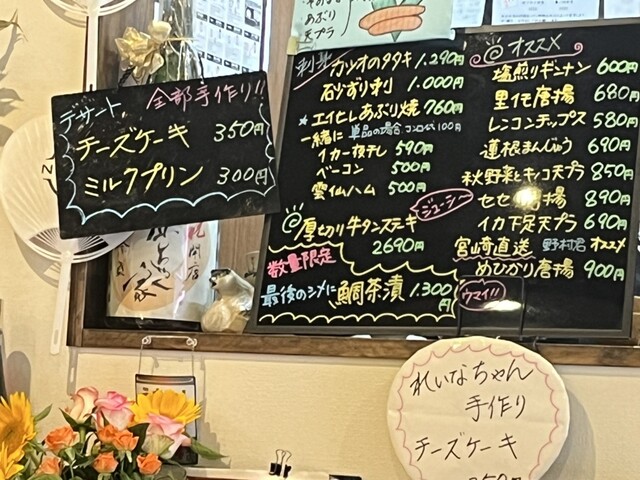 あぶり
天プラ
デザート 全部手作り!!
チーズケーキ 350円
ミルクプリン 300円
刺身
カツオのタタキ 1.290円
砂ずり刺 1.000円
★エイヒレあぶり焼 760円
一緒に 単品の場合 コンロ代100円
イカ一夜干し 590円
ベーコン 500円
雲仙ハム 500円
◎厚切り牛タンステーキ
ジューシ〜
数量限定 2690円
最後のシメに 鯛茶漬 1.300円
◎オススメ
塩煎りギンナン 600円
里芋唐揚 680円
レンコンチップス 580円
蓮根まんじゅう 690円
秋野菜とキノコ天プラ 850円
セセリ唐揚 890円
イカ下足天プラ 690円
宮崎直送 野村君オススメ
めひかり唐揚 900円
ウマイ!!
れいなちゃん
手作り
チーズケーキ
350円